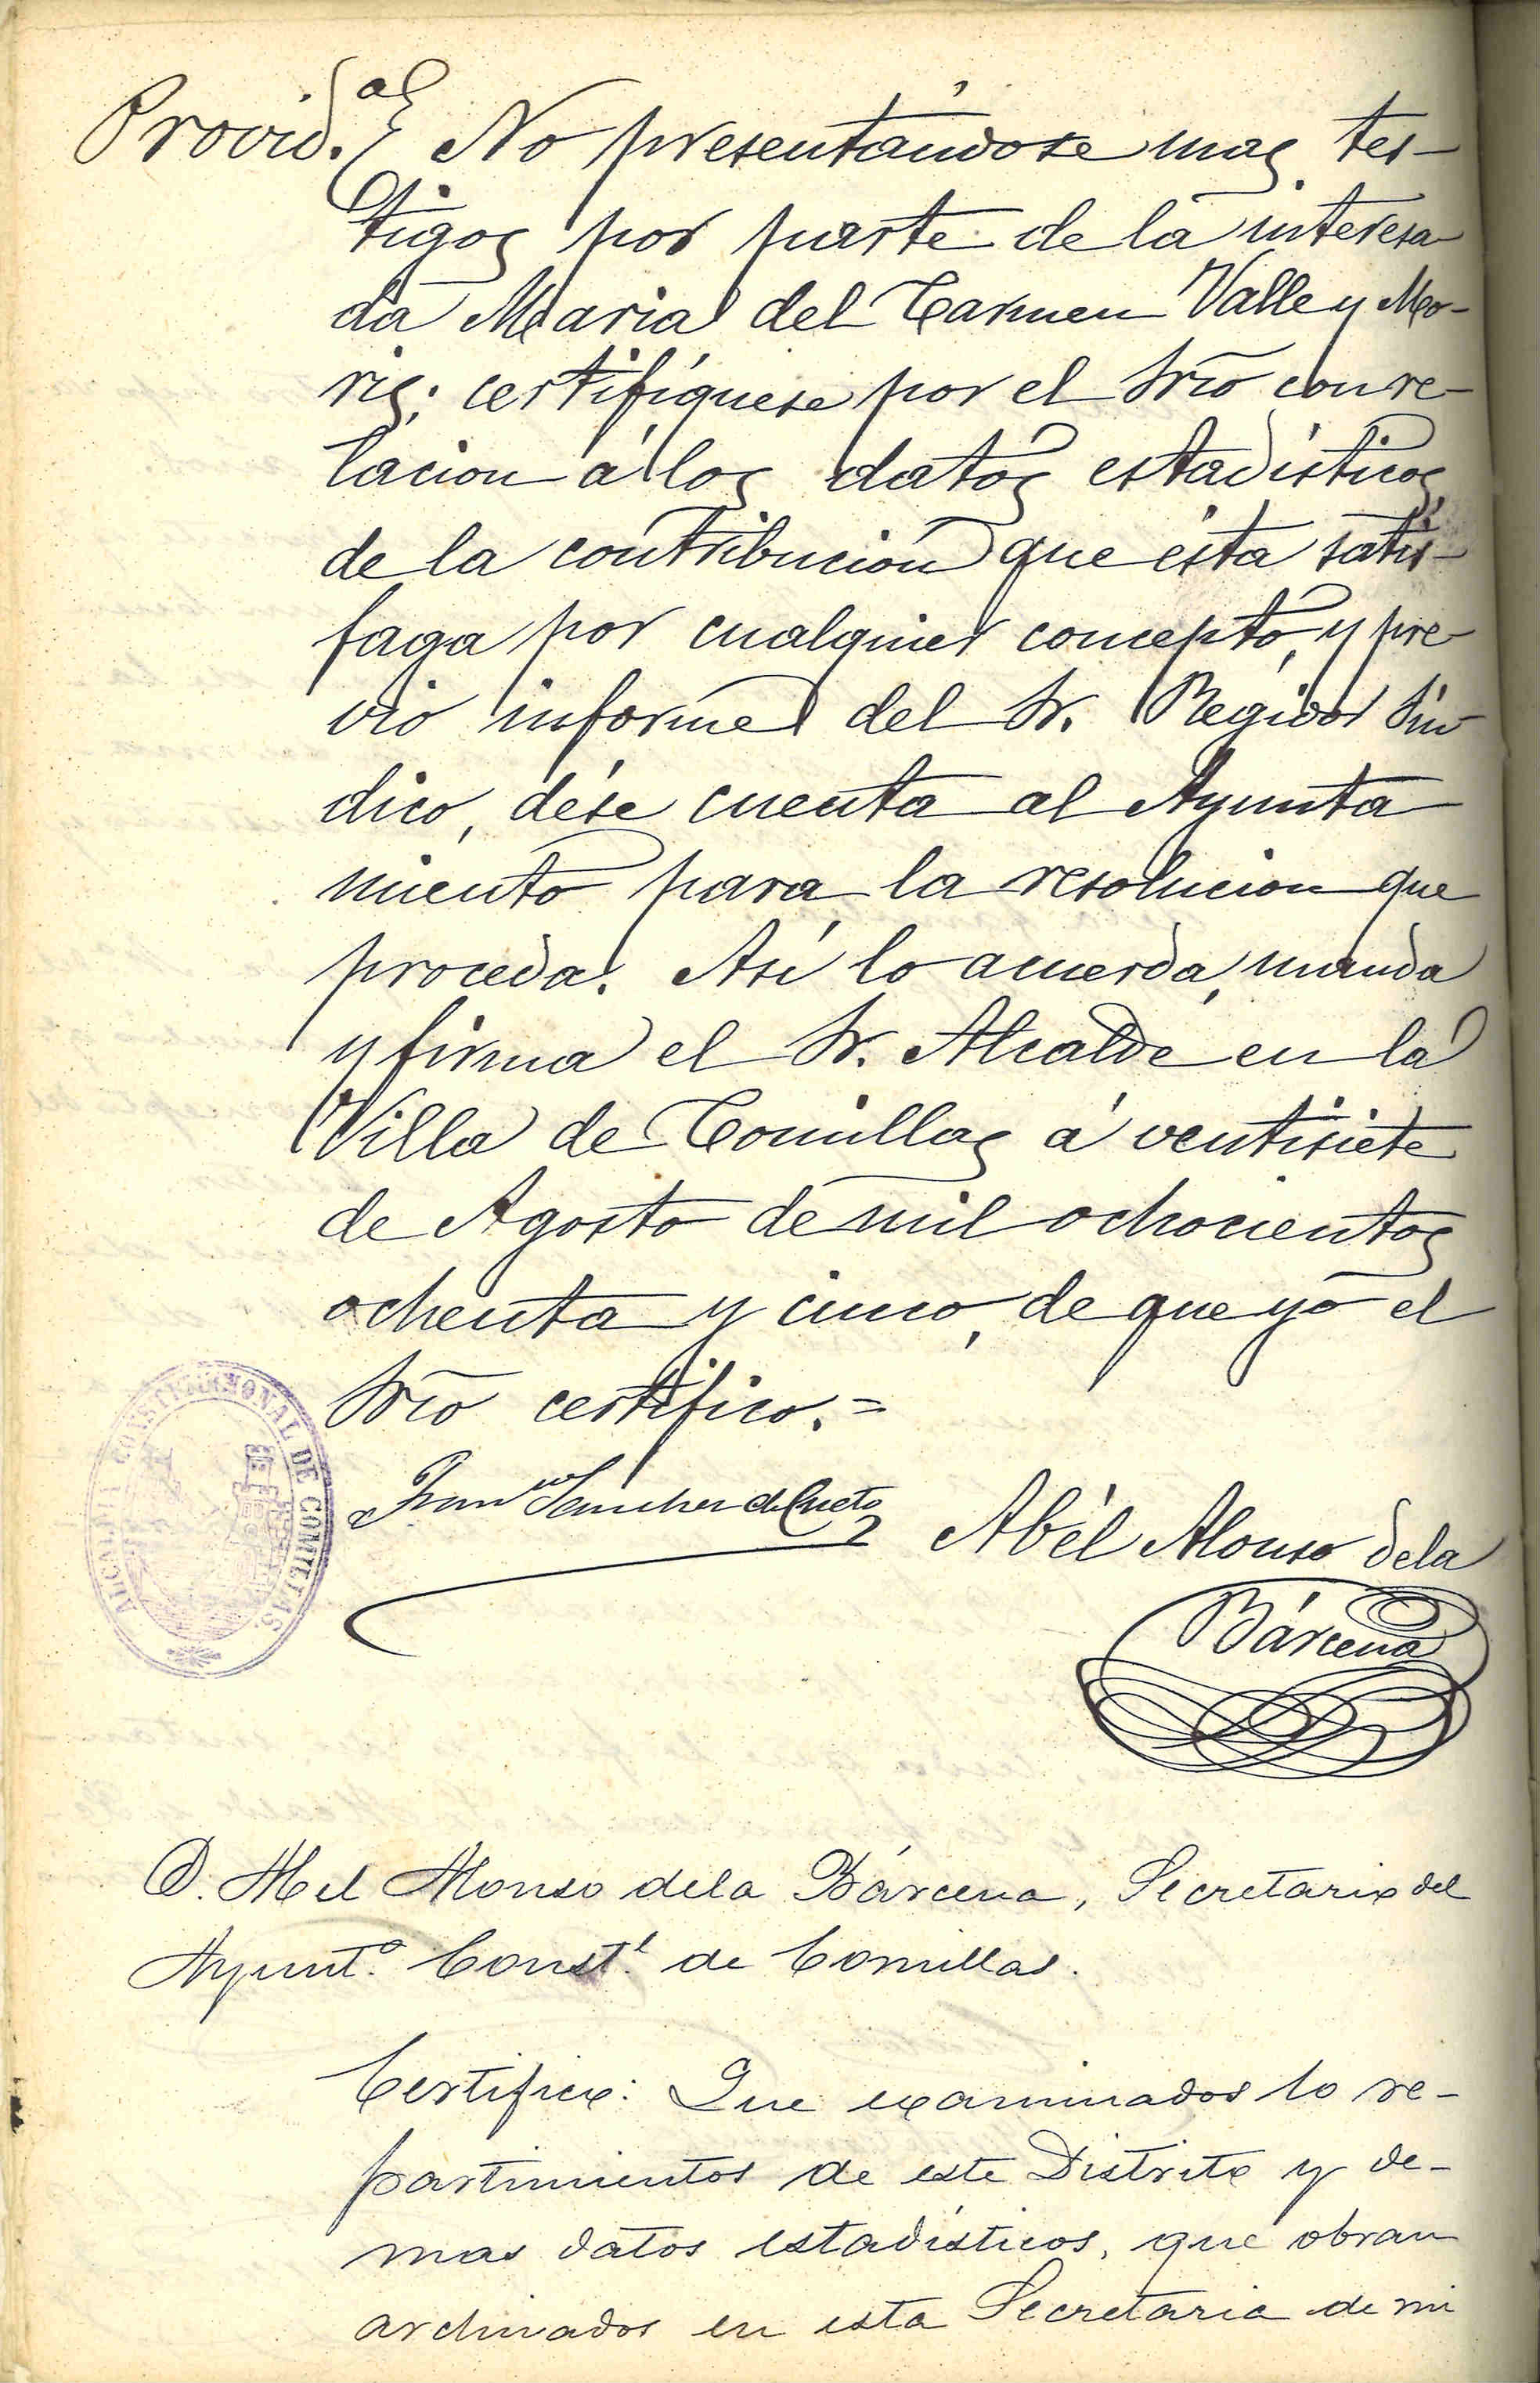 Provid.ª No presentándose mas tes-
tigos por parte de la interesa
da Maria del Carmen Valle y Mo-
ris; certifíquese por el Srio con re-
lacion á los datos estadísticos
de la contribucion que ésta satis-
faga por cualquier concepto, y pre-
vio informe del Sr. Regidor Sín
dico, dése cuenta al Ayunta
miento para la resolucion que
proceda. Así lo acuerda, manda
y firma el Sr. Alcalde en la
Villa de Comillas á ventisiete
de Agosto de mil ochocientos
ochenta y cinco, de que yo el
Srio certifico.=
ALCALDIA CONSTITUCIONAL DE COMILLAS.
Franco Sanchez de Cueto
Abél Alonso de la
Bárcena
D. Abel Alonso de la Bárcena, Secretario del
Ayunt.º Const.l de Comillas.
Certifico: Que examinados lo re-
partimientos de este Distrito y de-
mas datos estadísticos, que obran
archivados en esta Secretaria de mi